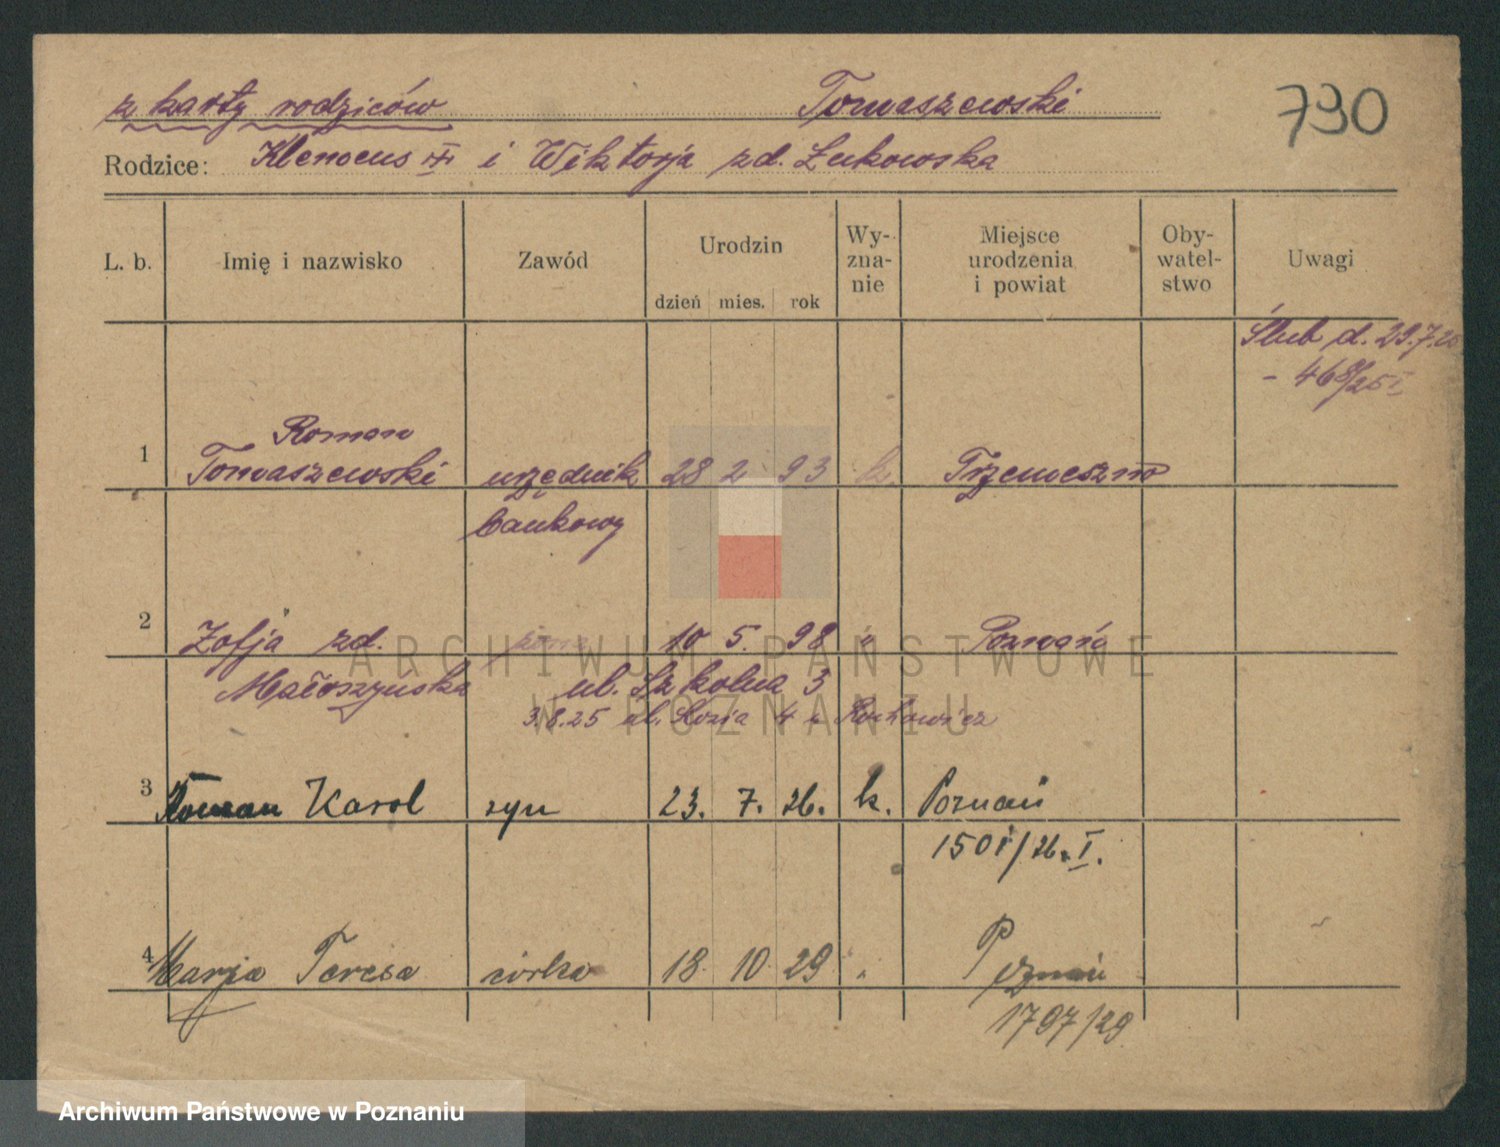 z karty rodziców Tomaszewski 790
Rodzice: Klemens i Wiktorja zd. Łukowska
L. b. Imię i nazwisko Zawód Urodzin Wy- zna- nie Miejsce urodzenia i powiat Oby- watel- stwo Uwagi
dzień mies. rok
Ślub d. 29.7.25
- 468/25 I
Roman
1 Tomaszewski urzędnik 28 2 93 k. Trzemeszno
bankowy
2 Zofja zd. żona 10 5. 98 " Poznań
Małoszyńska ul. Szkolna 3
3.8.25 ul. Kozia 4
3 Roman Karol syn 23. 7. 26. k. Poznań
1501/26. I.
4 Marja Teresa córka 18 10 29 " Poznań
1797/29
ARCHIWUM PAŃSTWOWE
W POZNANIU
Archiwum Państwowe w Poznaniu